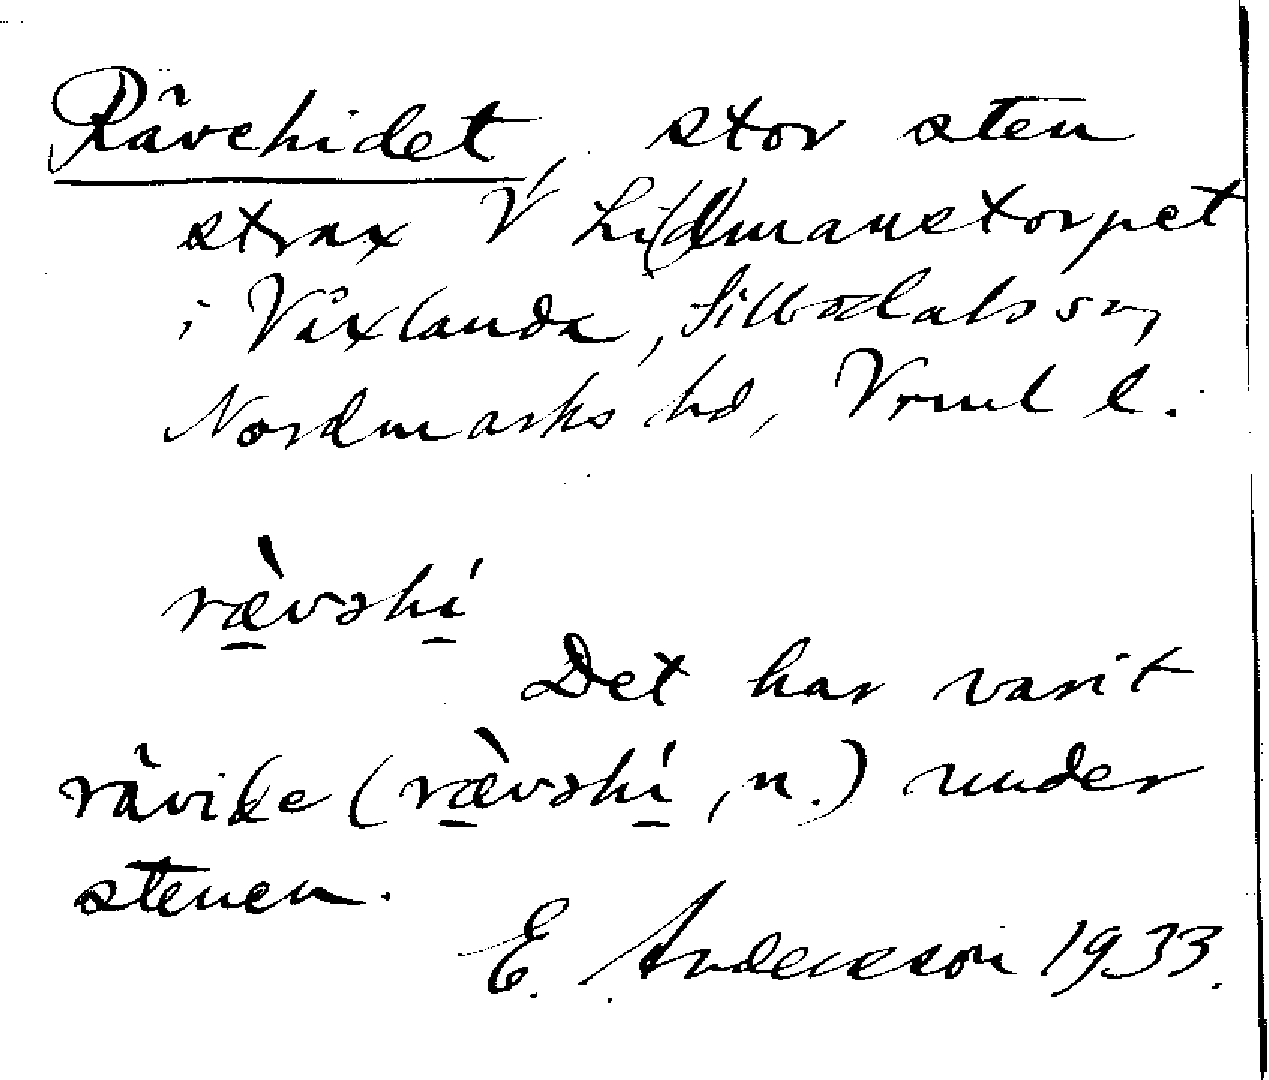 Rävehidet, stor sten
strax V Lidmanstorpet
i Våxlanda, Sillbodals sn,
Nordmarks hd, Vrml l.
ræ̀vshí
Det har varit
rävide (ræ̀vshí, n.) under
stenen.
E. Andersson 1933.